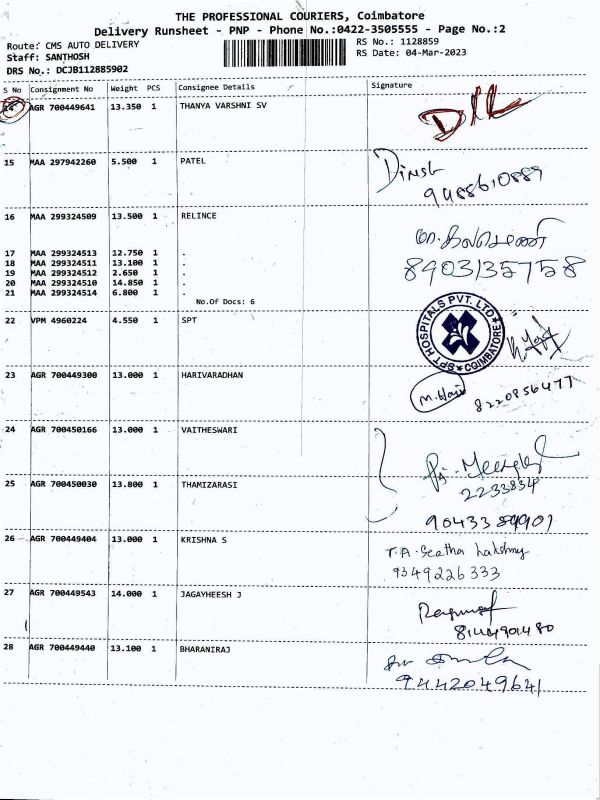 THE PROFESSIONAL COURIERS, Coimbatore
Delivery Runsheet - PNP - Phone No.:0422-3505555 - Page No.:2
Route: CMS AUTO DELIVERY
RS No.: 1128859
Staff: SANTHOSH
RS Date: 04-Mar-2023
DRS No.: DCJB112885902
S No Consignment No Weight PCS Consignee Details Signature
14 AGR 700449641 13.350 1 THANYA VARSHNI SV
15 MAA 297942260 5.500 1 PATEL
Dinesh
9488610889
16 MAA 299324509 13.500 1 RELINCE
8903135758
17 MAA 299324513 12.750 1 .
18 MAA 299324511 13.100 1 .
19 MAA 299324512 2.650 1 .
20 MAA 299324510 14.850 1 .
21 MAA 299324514 6.800 1 .
No.Of Docs: 6
22 VPM 4960224 4.550 1 SPT
SPT HOSPITALS PVT. LTD. COIMBATORE
23 AGR 700449300 13.000 1 HARIVARADHAN
M. Hari
8220856477
24 AGR 700450166 13.000 1 VAITHESWARI
2233834
25 AGR 700450030 13.800 1 THAMIZARASI
26 AGR 700449404 13.000 1 KRISHNA S
T.A. Seetha Lakshmy
9349226333
27 AGR 700449543 14.000 1 JAGAYHEESH J
8144901480
28 AGR 700449440 13.100 1 BHARANIRAJ
9442049641